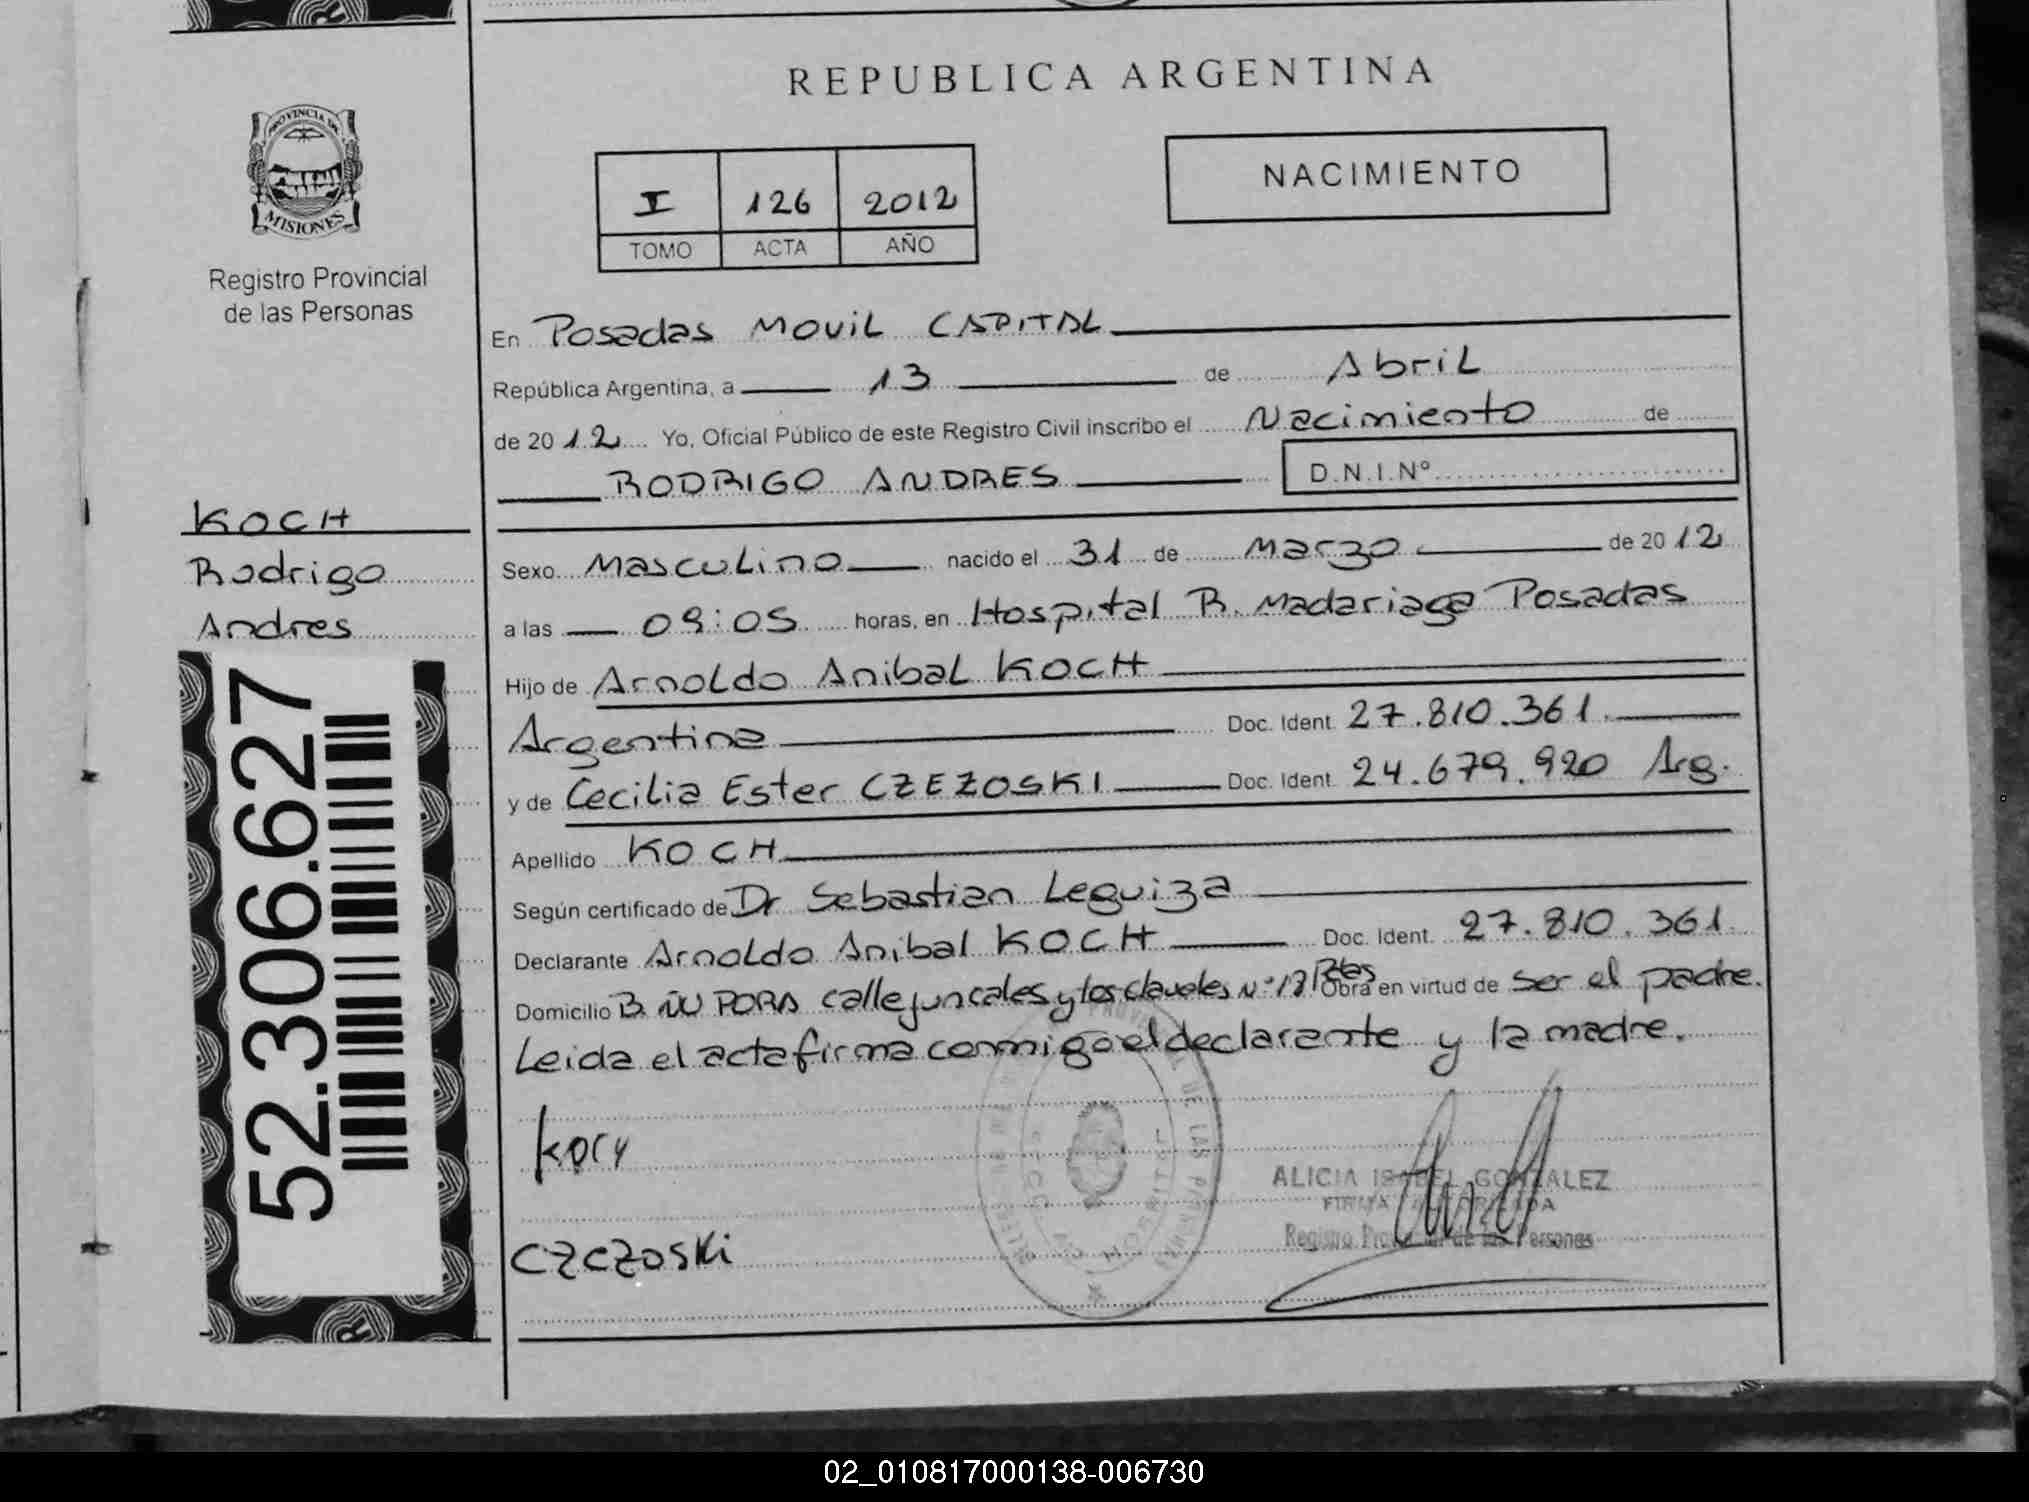 REPUBLICA ARGENTINA
PROVINCIA DE
MISIONES
Registro Provincial
de las Personas
NACIMIENTO
I 126 2012
TOMO ACTA AÑO
En Posadas MOVIL CAPITAL
República Argentina, a 13 de Abril
de 2012 Yo, Oficial Público de este Registro Civil inscribo el Nacimiento de
RODRIGO ANDRES D.N.I.Nº
KOCH
Rodrigo
Andres
52.306.627
Sexo Masculino nacido el 31 de Marzo de 2012
a las 09:05 horas, en Hospital R. Madariaga Posadas
Hijo de Arnoldo Anibal KOCH
Argentina Doc. Ident. 27.810.361
y de Cecilia Ester CZEZOSKI Doc. Ident. 24.679.920 Arg.
Apellido KOCH
Según certificado de Dr Sebastian Leguiza
Declarante Arnoldo Anibal KOCH Doc. Ident. 27.810.361
Domicilio B. ÑU PORA calle juncales y los claveles Nº 18 Obra en virtud de ser el padre.
Leida el acta firma conmigo el declarante y la madre.
Koch
CZCZOSKi
ALICIA ISABEL GONZALEZ
Registro Provincial de las Personas
02_010817000138-006730